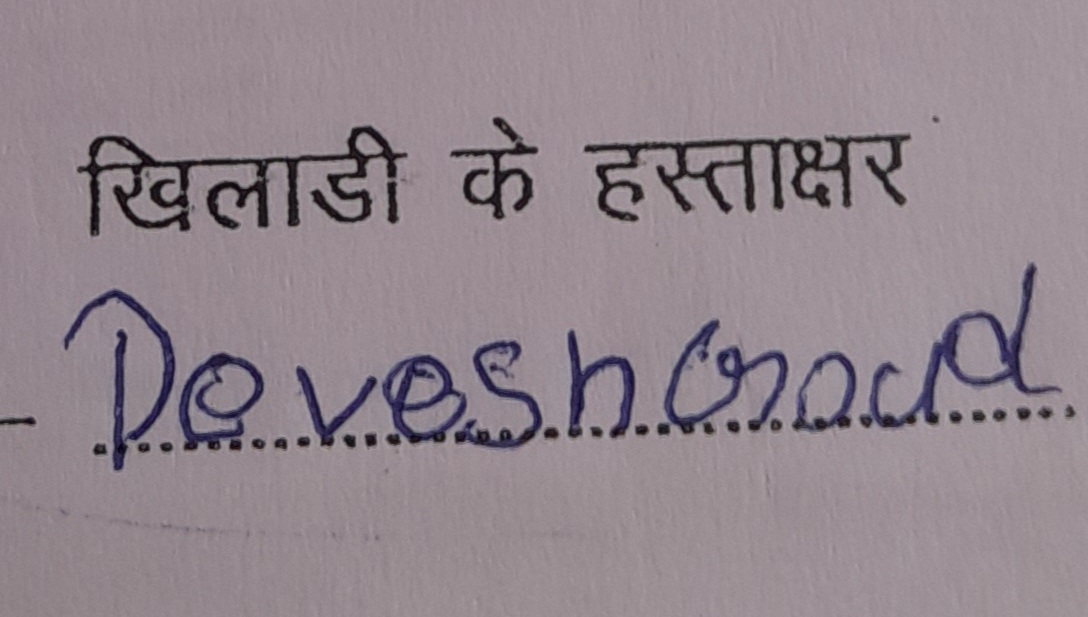 खिलाडी के हस्ताक्षर
Devesh Goaud